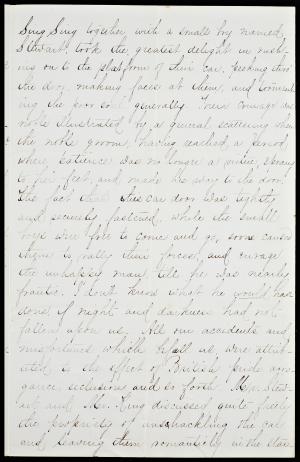 Sing Sing together with a small boy named
Stewart, took the greatest delight in rush-
ing on to the platform of their car, peeking thro'
the door, making faces at them, and torment-
ing the poor soul generally. Their courage was
nobly illustrated by a general scattering when
the noble groom, having reached a period
where patience was no longer a virtue, sprang
to his feet, and made his way to the door.
The fact that this car door was tightly
and securely fastened, while the small
boys were free to come and go, soon caused
them to rally their forces, and enrage
the unhappy man, till he was nearly
frantic. I don't know what he would have
done, if night and darkness had not
fallen upon us. All our accidents and
misfortunes which befall us, were attrib-
uted to the effect of British pride arro-
gance, seclusion and so forth. Mr. Stew-
art and Mr. King discussed quite freely
the propriety of unshackling the car
and leaving them romantically in the